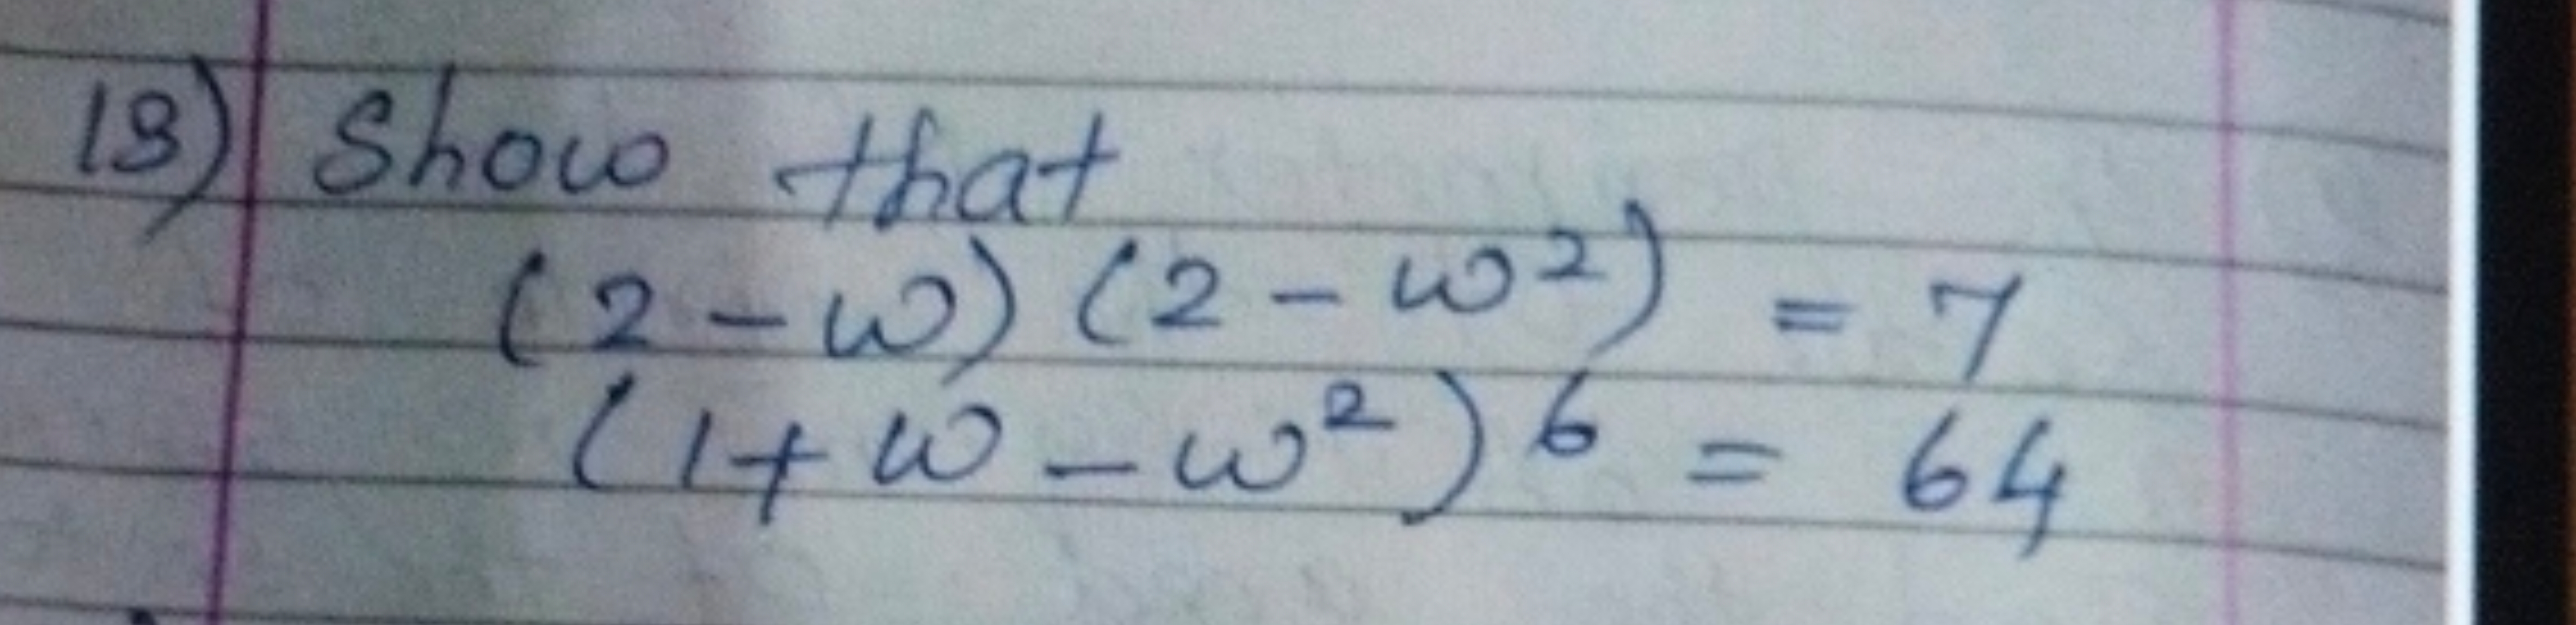 18) Show that
(2-ω) (2-ω²) = 7
(1+ω-ω²)⁶ = 64